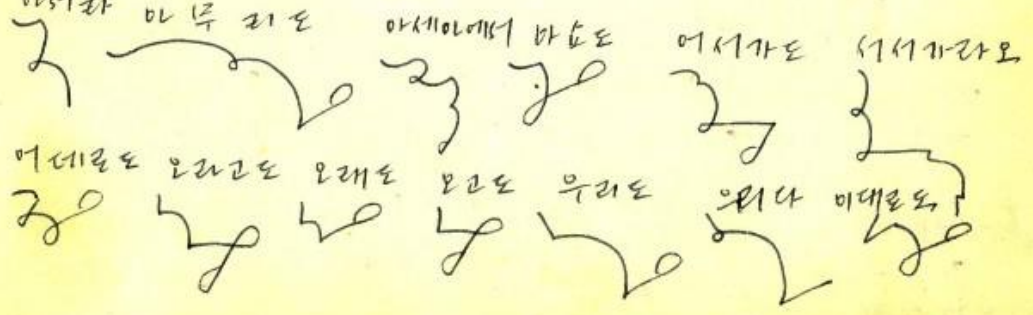 아무리도 아세아에서 바쇼도 어서가도 서서가라오
어데로도 오라고도 오래도 오고도 우리도 우리다 이대로도